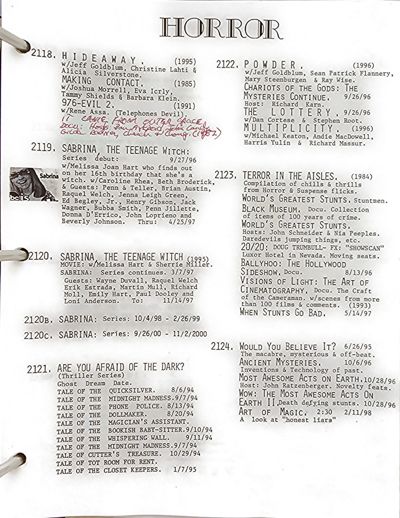 HORROR
2118. HIDEAWAY. (1995)
w/Jeff Goldblum, Christine Lahti &
Alicia Silverstone.
MAKING CONTACT. (1985)
w/Joshua Morrell, Eva Icrly,
Tammy Shields & Barbara Klein.
976-EVIL 2. (1991)
w/Rene Assa. (Telephones Devil)
IT CAME FROM OUTER SPACE
2119. SABRINA, THE TEENAGE WITCH:
Series debut: 9/27/96
w/Melissa Joan Hart who finds out
on her 16th birthday that she's a
witch. w/Caroline Rhea, Beth Broderick,
& Guests: Penn & Teller, Brian Austin,
Raquel Welch, Jenna Leigh Green,
Ed Begley, Jr., Henry Gibson, Jack
Wagner, Bubba Smith, Penn Jillette,
Donna D'Errico, John Loprieno and
Beverly Johnson. Thru: 4/25/97
Sabrina
2120. SABRINA, THE TEENAGE WITCH (1995)
MOVIE: w/Melissa Hart & Sherrie Miller.
SABRINA: Series continues. 3/7/97
Guests: Wayne Duvall, Raquel Welch
Erik Estrada, Martin Mull, Richard
Moll, Emily Hart, Paul Dooley and
Loni Anderson. To: 11/14/97
2120B. SABRINA: Series: 10/4/98 - 2/26/99
2120C. SABRINA: Series: 9/26/00 - 11/2/2000
2121. ARE YOU AFRAID OF THE DARK?
(Thriller Series)
Ghost Dream Date.
TALE OF THE QUICKSILVER. 8/6/94
TALE OF THE MIDNIGHT MADNESS.9/7/94
TALE OF THE PHONE POLICE. 8/13/94
TALE OF THE DOLLMAKER. 8/20/94
TALE OF THE MAGICIAN'S ASSISTANT.
TALE OF THE BOOKISH BABY-SITTER.9/10/94
TALE OF THE WHISPERING WALL. 9/11/94
TALE OF THE MIDNIGHT MADNESS.9/7/94
TALE OF CUTTER'S TREASURE. 10/29/94
TALE OF TOT ROOM FOR RENT.
TALE OF THE CLOSET KEEPERS. 1/7/95
2122. POWDER. (1996)
w/Jeff Goldblum, Sean Patrick Flannery,
Mary Steenburgen & Ray Wise.
CHARIOTS OF THE GODS: THE
MYSTERIES CONTINUE. 9/26/96
Host: Richard Karn.
THE LOTTERY. 9/29/96
w/Dan Cortese & Stephen Root.
MULTIPLICITY. (1996)
w/Michael Keaton, Andie MacDowell,
Harris Yulin & Richard Massur.
2123. TERROR IN THE AISLES. (1984)
Compilation of chills & thrills
from Horror & Suspense flicks.
WORLD'S GREATEST STUNTS. Stuntmen.
BLACK MUSEUM. Docu. Collection
of items of 100 years of crime.
WORLD'S GREATEST STUNTS:
Hosts: John Schneider & Nia Peeples.
Daredevils jumping things, etc.
20/20: DOUG TRUMBULL- FX: "SHOWSCAN"
Luxor Hotel in Nevada. Moving seats.
BALLYHOO: THE HOLLYWOOD
SIDESHOW. Docu. 8/13/96
VISIONS OF LIGHT: THE ART OF
CINEMATOGRAPHY. Docu. The Craft
of the Cameraman. w/scenes from more
than 100 films & comments. (1993)
WHEN STUNTS GO BAD. 5/14/97
2124. WOULD YOU BELIEVE IT? 6/26/93
The macabre, mysterious & off-beat.
ANCIENT MYSTERIES. 10/6/96
Inventions & Technology of past.
MOST AWESOME ACTS ON EARTH.10/28/96
Host: John Ratzenberger. Novelty feats.
WOW: THE MOST AWESOME ACTS ON
EARTH II.Death defying stunts. 10/28/96
ART OF MAGIC. 2:30 2/11/98
A look at "honest liars"